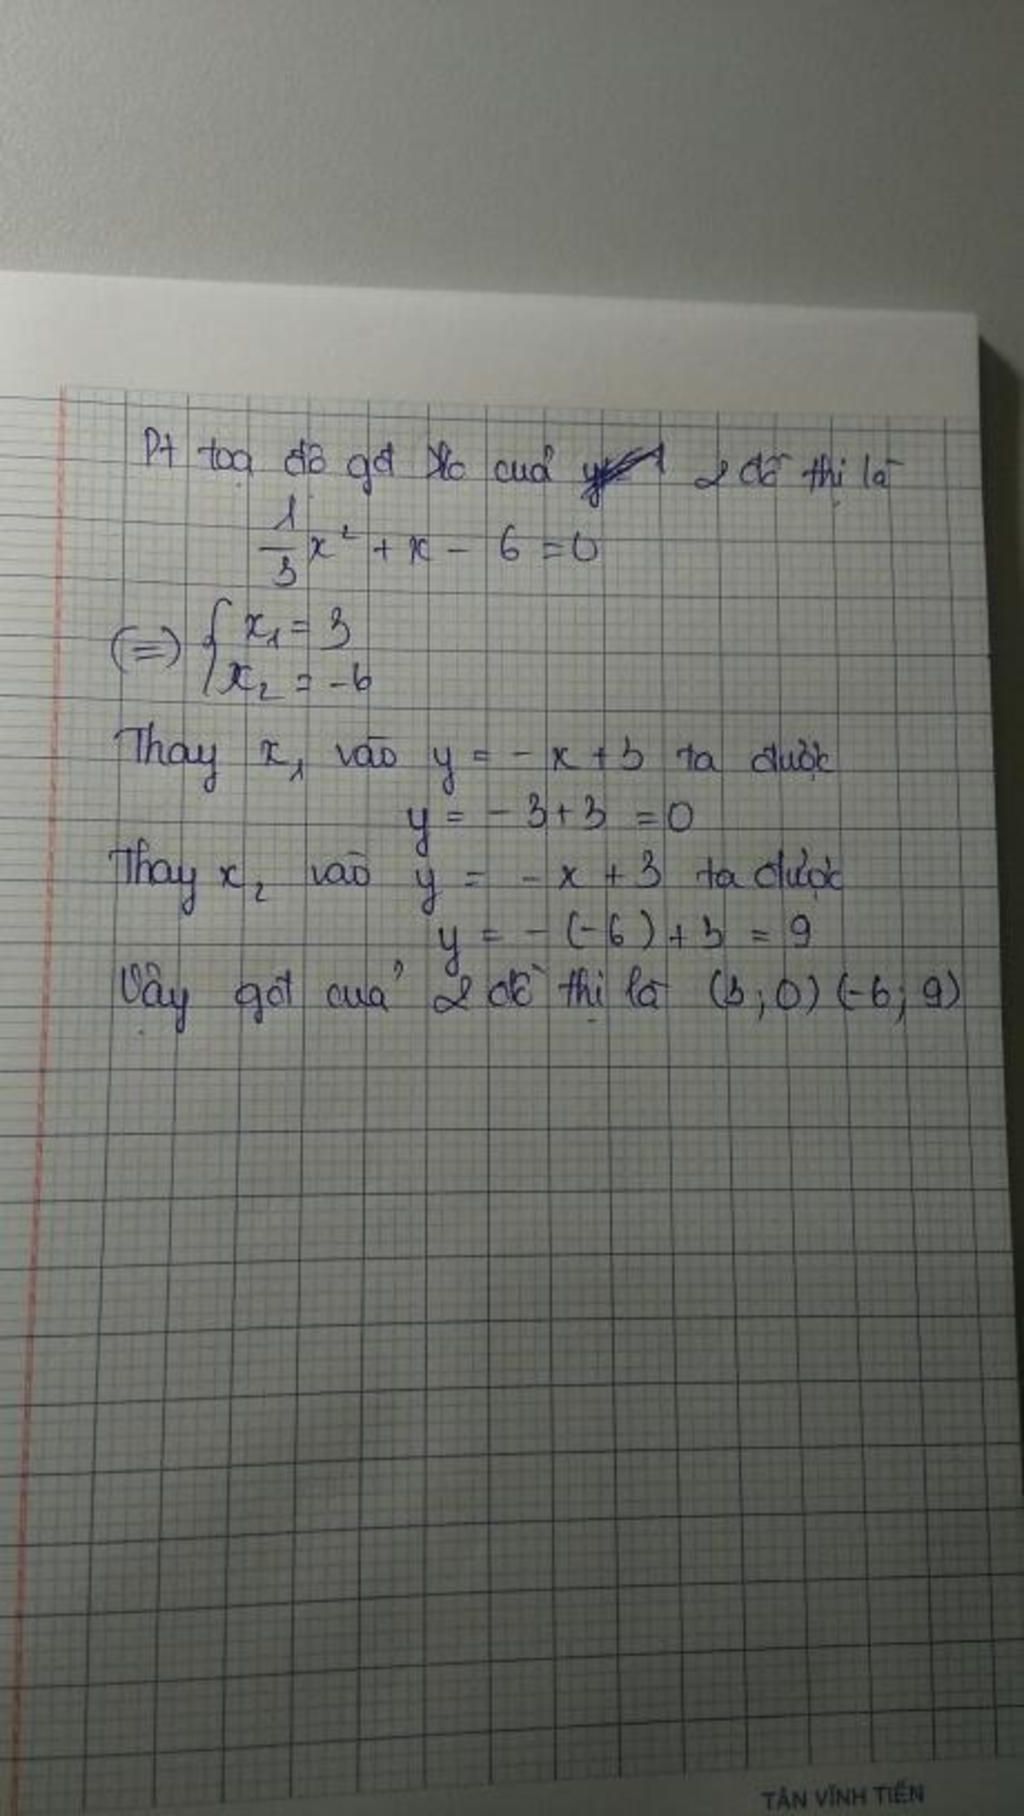 Pt toạ độ gđ của 2 đồ thị là
1/3 x² + x - 6 = 0
(=) { x₁ = 3
x₂ = -6
Thay x₁ vào y = -x + 3 ta được
y = -3 + 3 = 0
Thay x₂ vào y = -x + 3 ta được
y = -(-6) + 3 = 9
Vậy gđ của 2 đồ thị là (3; 0) (-6; 9)
TÂN VĨNH TIẾN